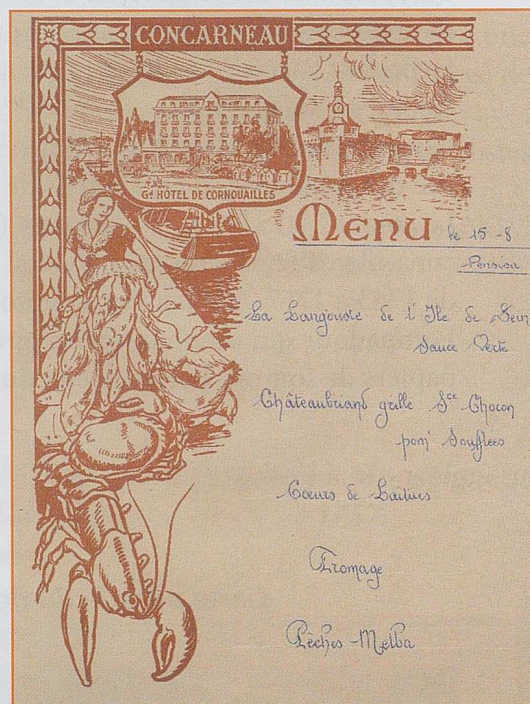 CONCARNEAU
Gd HÔTEL DE CORNOUAILLES
MENU le 15-8
Pension
La Langouste de l'Ile de Sein
Sauce Verte
Châteaubriand grille Sce Choron
pom' Soufflees
Coeurs de Laitues
Fromage
Pêches-Melba